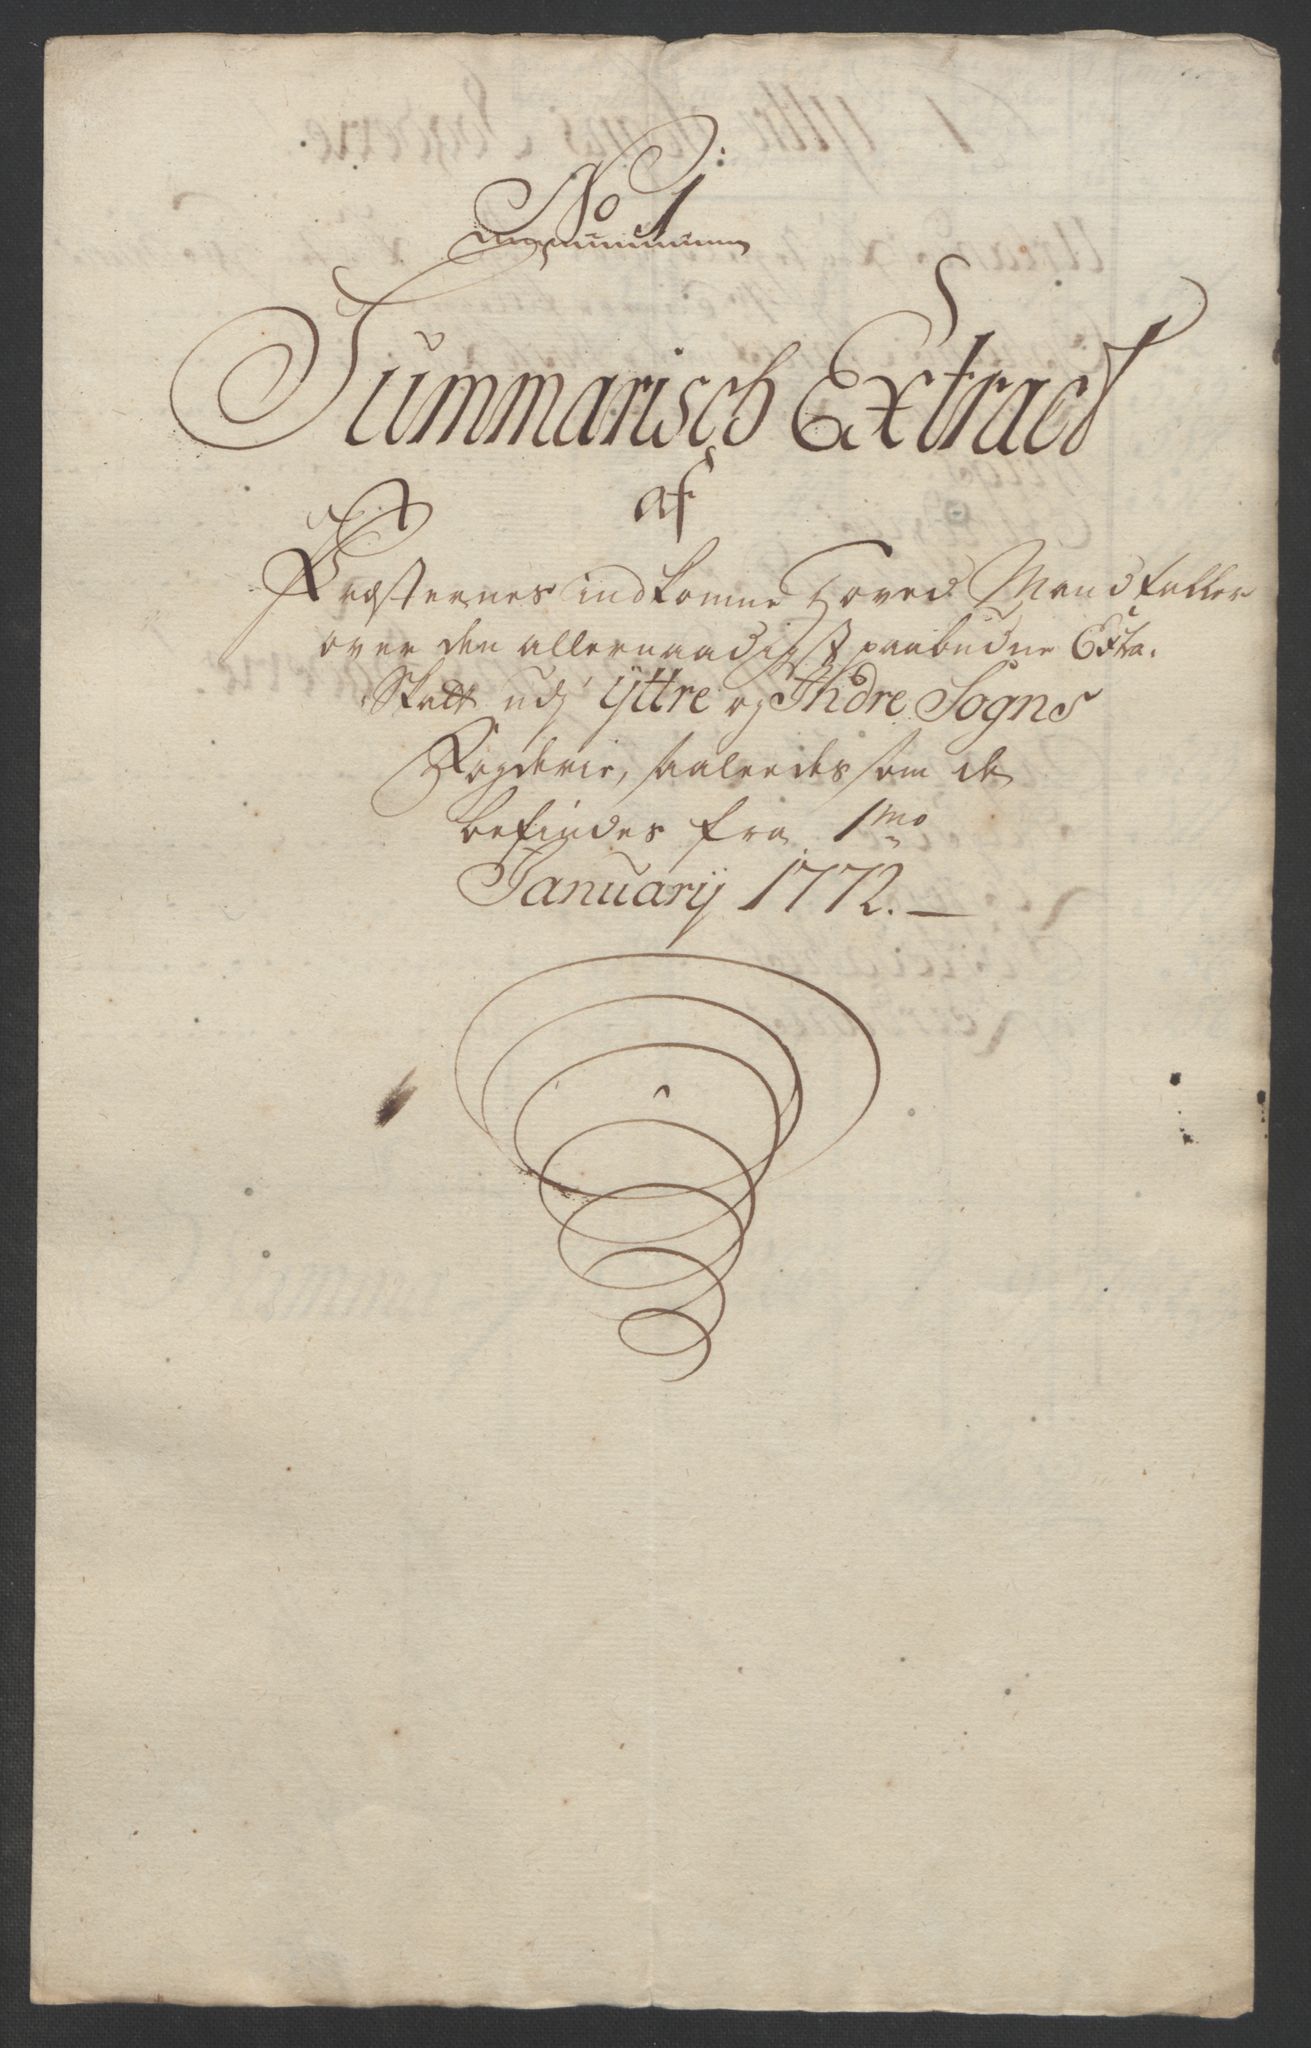 No 1
Summarisch Extract
af
Præsternes indkomne Hoved Mandtaller
over den allernaadigst paabudne Extra.
Skatt udj Yttre og Indre Sogns
Fogderie, saaleedes som de
befindes fra 1mo
Januarij 1772.